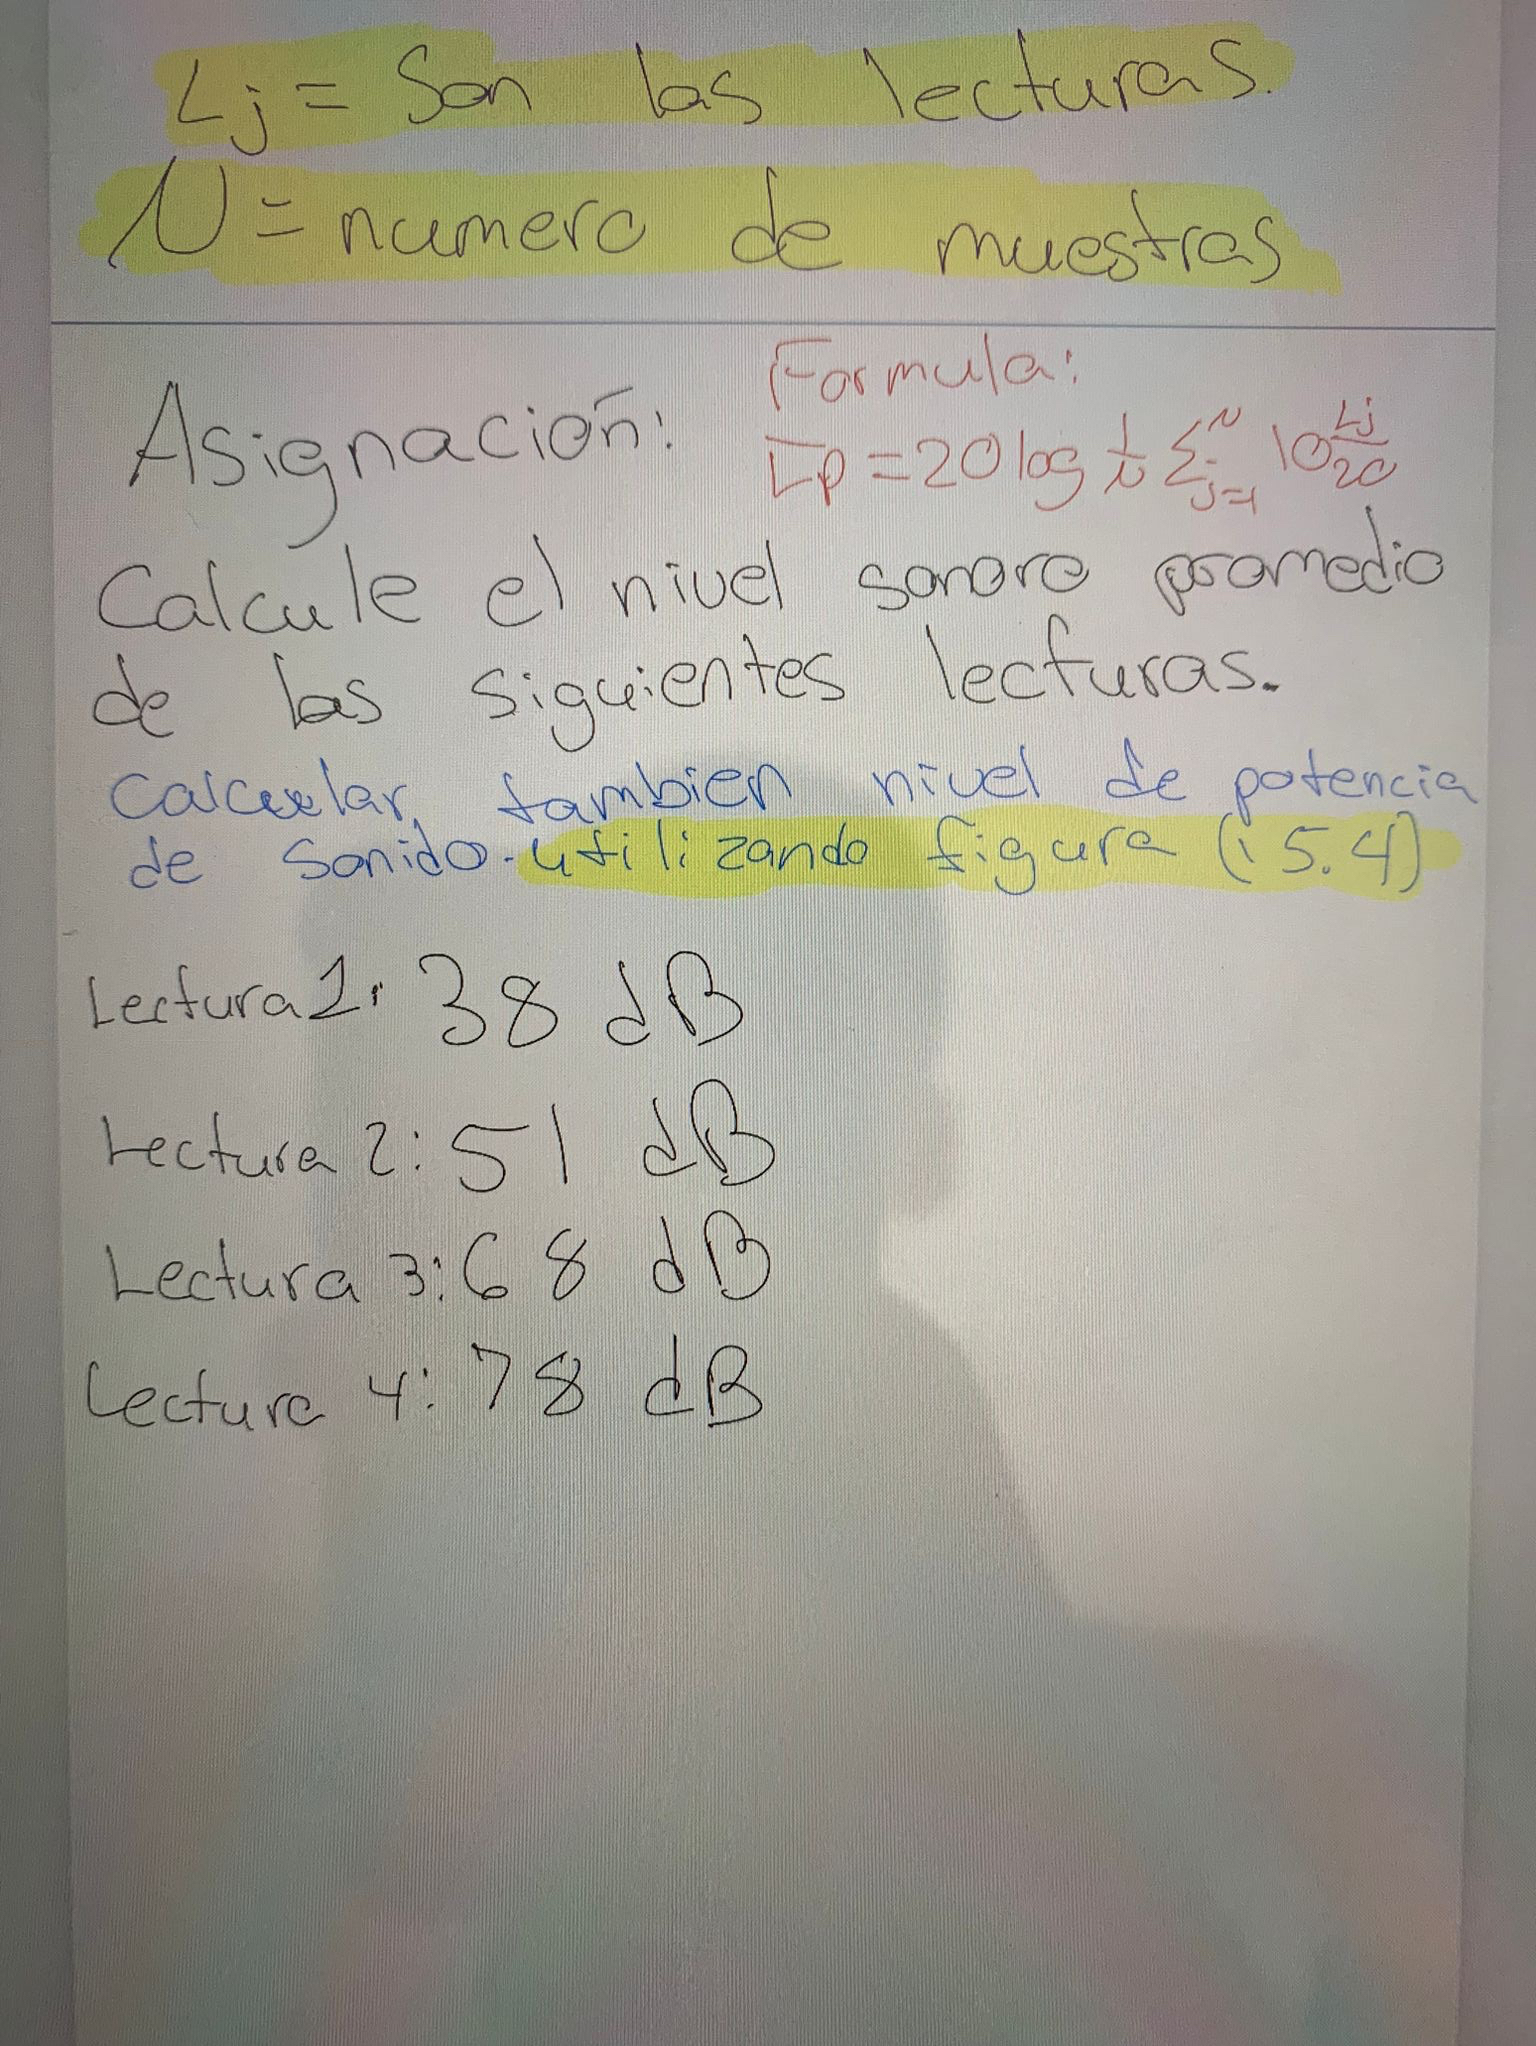 Lj = Son las lecturas.
N = numero de muestras
Formula:
Asignación:
L̅p = 20 log 1/N Σ^N_j=1 10^Lj/20
Calcule el nivel sonoro promedio
de las siguientes lecturas.
Calcular tambien nivel de potencia
de sonido utilizando figura (15.4)
Lectura 1: 38 dB
Lectura 2: 51 dB
Lectura 3: 68 dB
Lectura 4: 78 dB